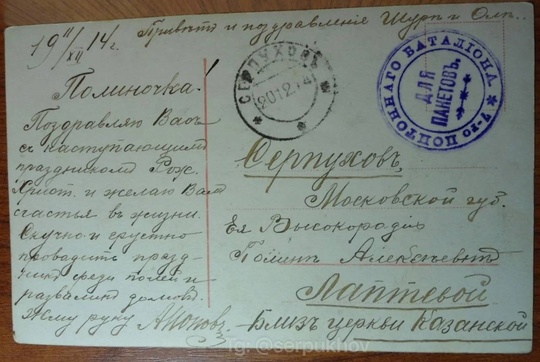 Привет и поздравление Шуре и Оле..
19 11/XII 14 г.
Полиночка!
Поздравляю Васъ
съ наступающимъ
праздникомъ Рож.
Христ. и желаю Вамъ
счастья въ жизни.
Скучно и грустно
проводить празд-
ники среди полей и
развалинъ домовъ.
Жму руку
СЕРПУХОВЪ
20 12 14
7-го ПОНТОННАГО БАТАЛІОНА
ДЛЯ
ПАКЕТОВЪ.
Серпуховъ,
Московской губ.
Ея Высокородію
Полинѣ Алексѣевнѣ
Лаптевой
Близъ церкви Казанской
Tg: @serpukhov